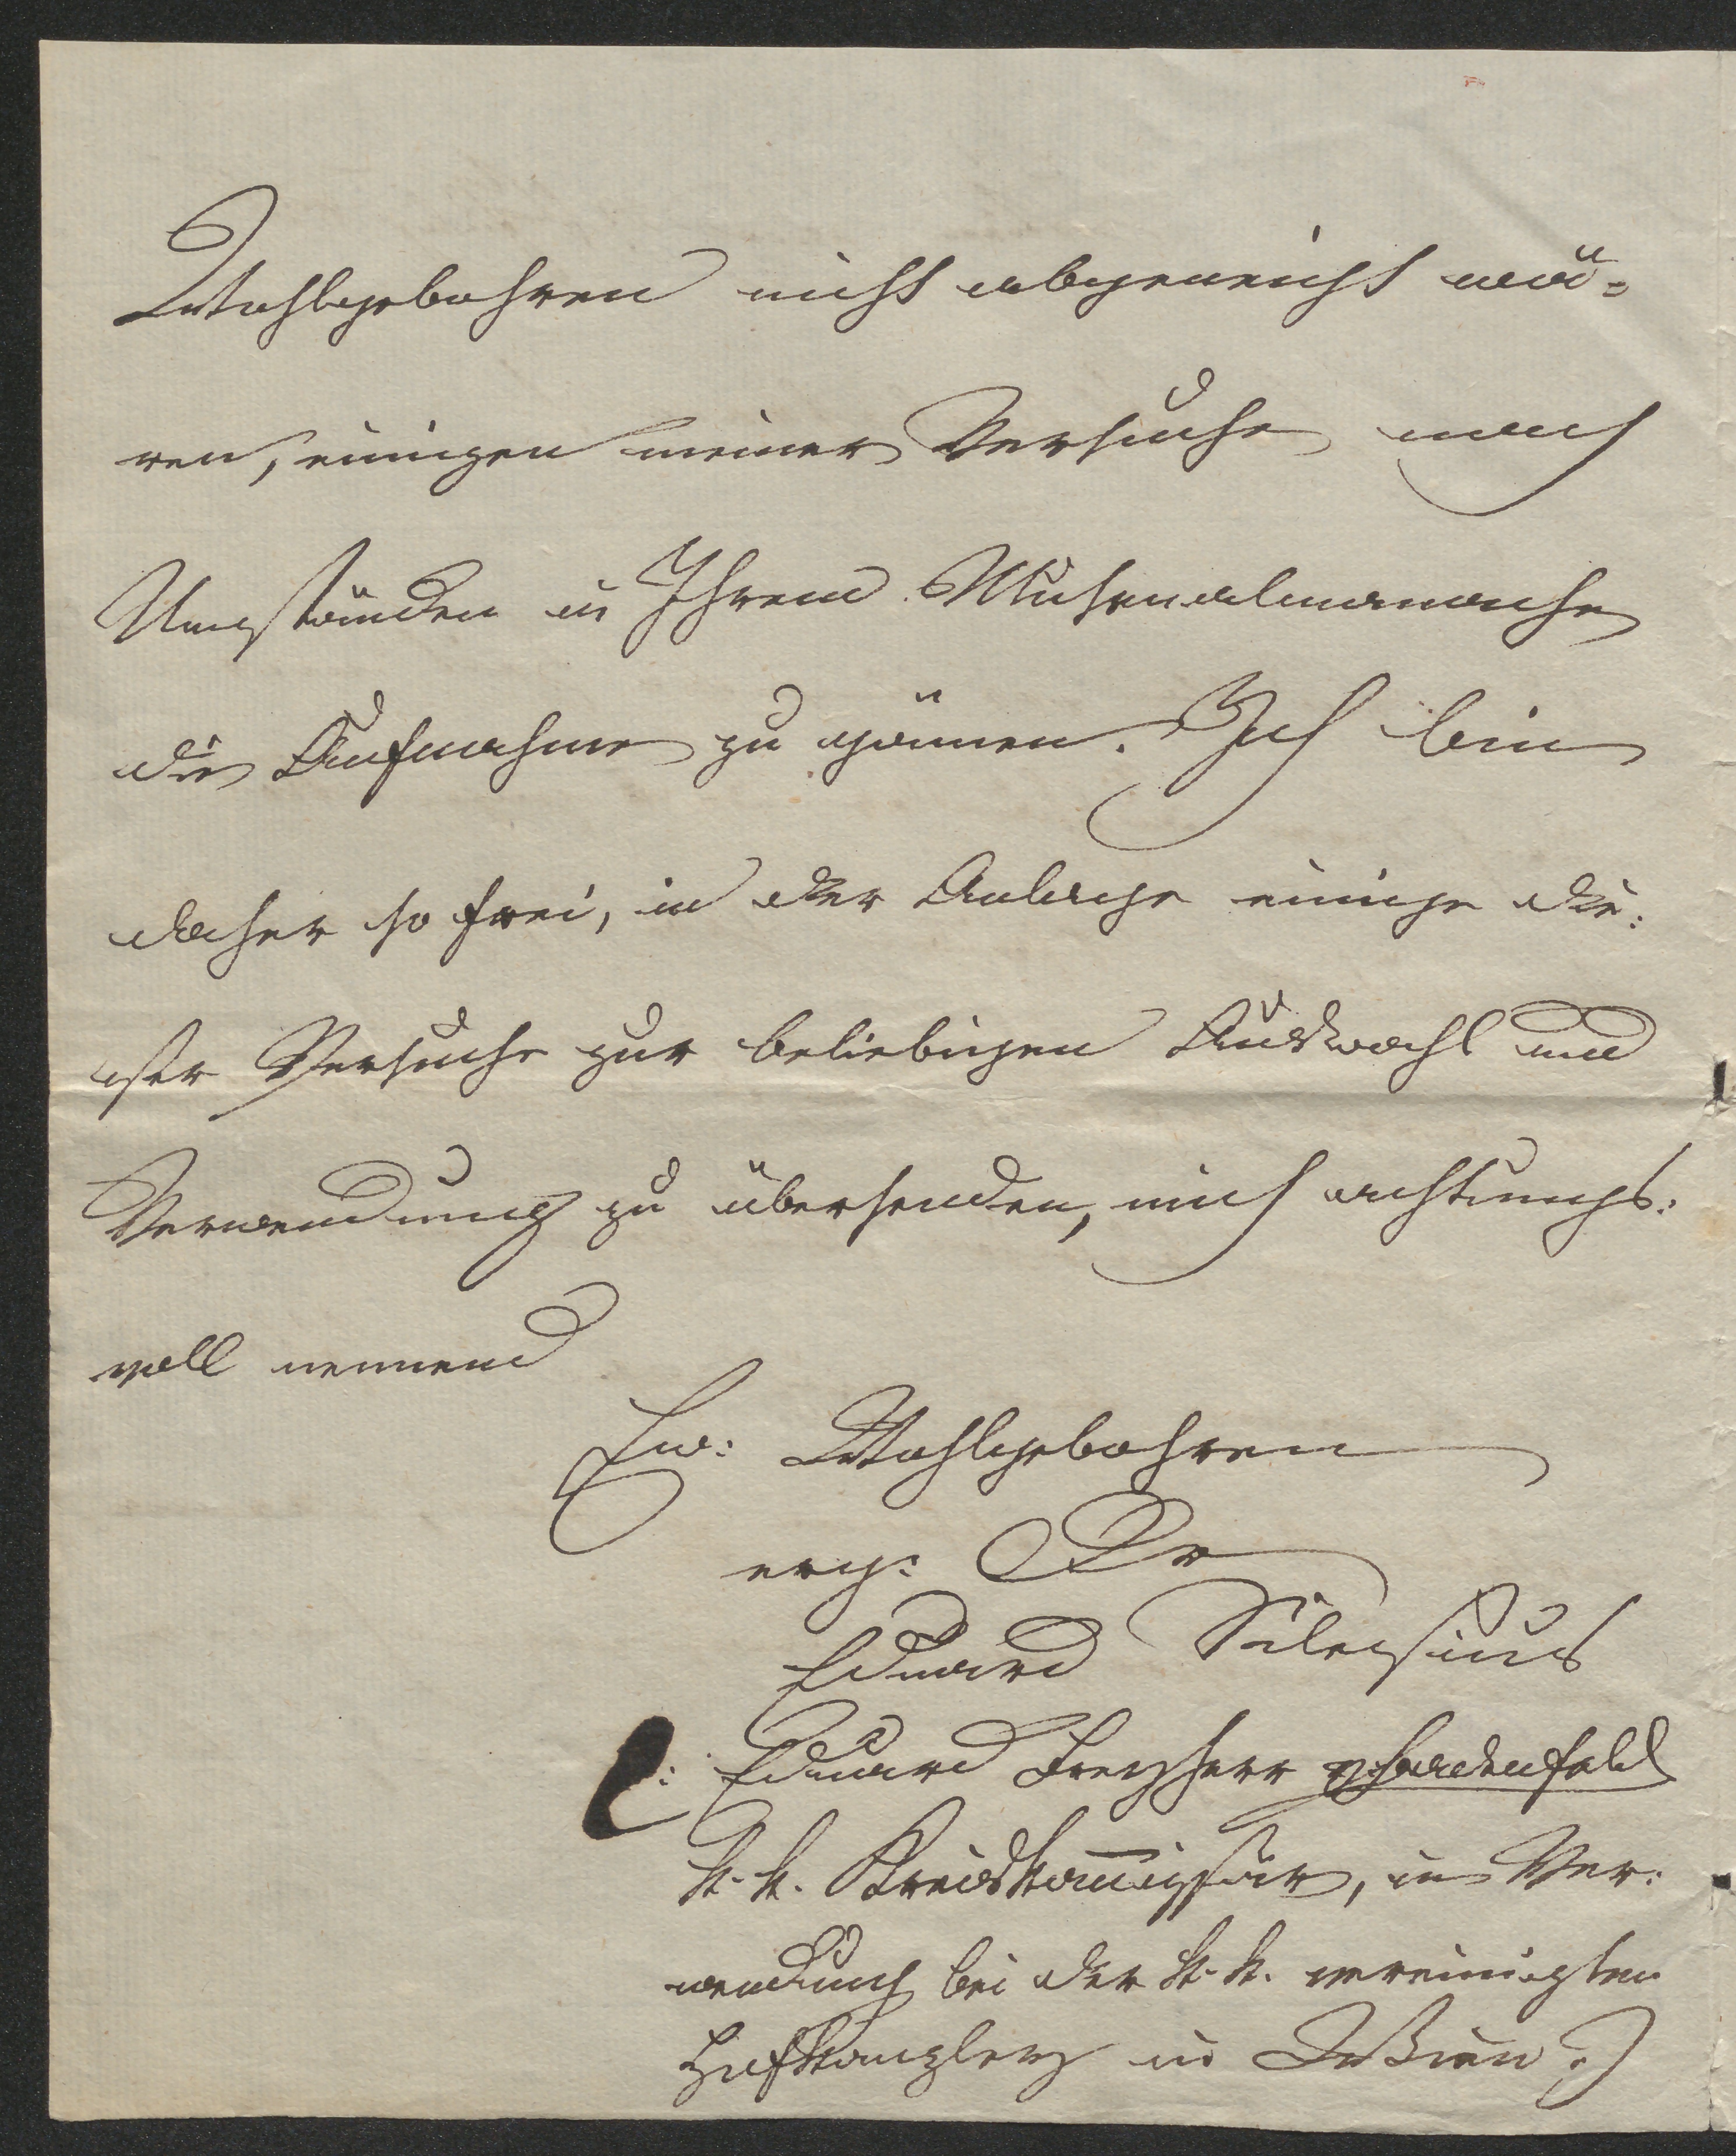 Wohlgebohren nicht abgeneigt wä=
ren, einigen meiner Versuche nach
Umständen in Ihrem Musenalmanache
die Aufnahme zu gönnen. Ich bin
daher so frei, in der Anlage einige die:
ser Versuche zur beliebigen Auswahl und
Verwendung zu übersenden, mich achtungs:
voll nennend
Ew: Wohlgebohren
erg: Dr
Eduard Silesius
(: Eduard Freyherr v Badenfeld
k. k. Kreiskom̅issär, in Ver:
wendung bei der k. k. vereinigten
Hofkanzley in Wien :)